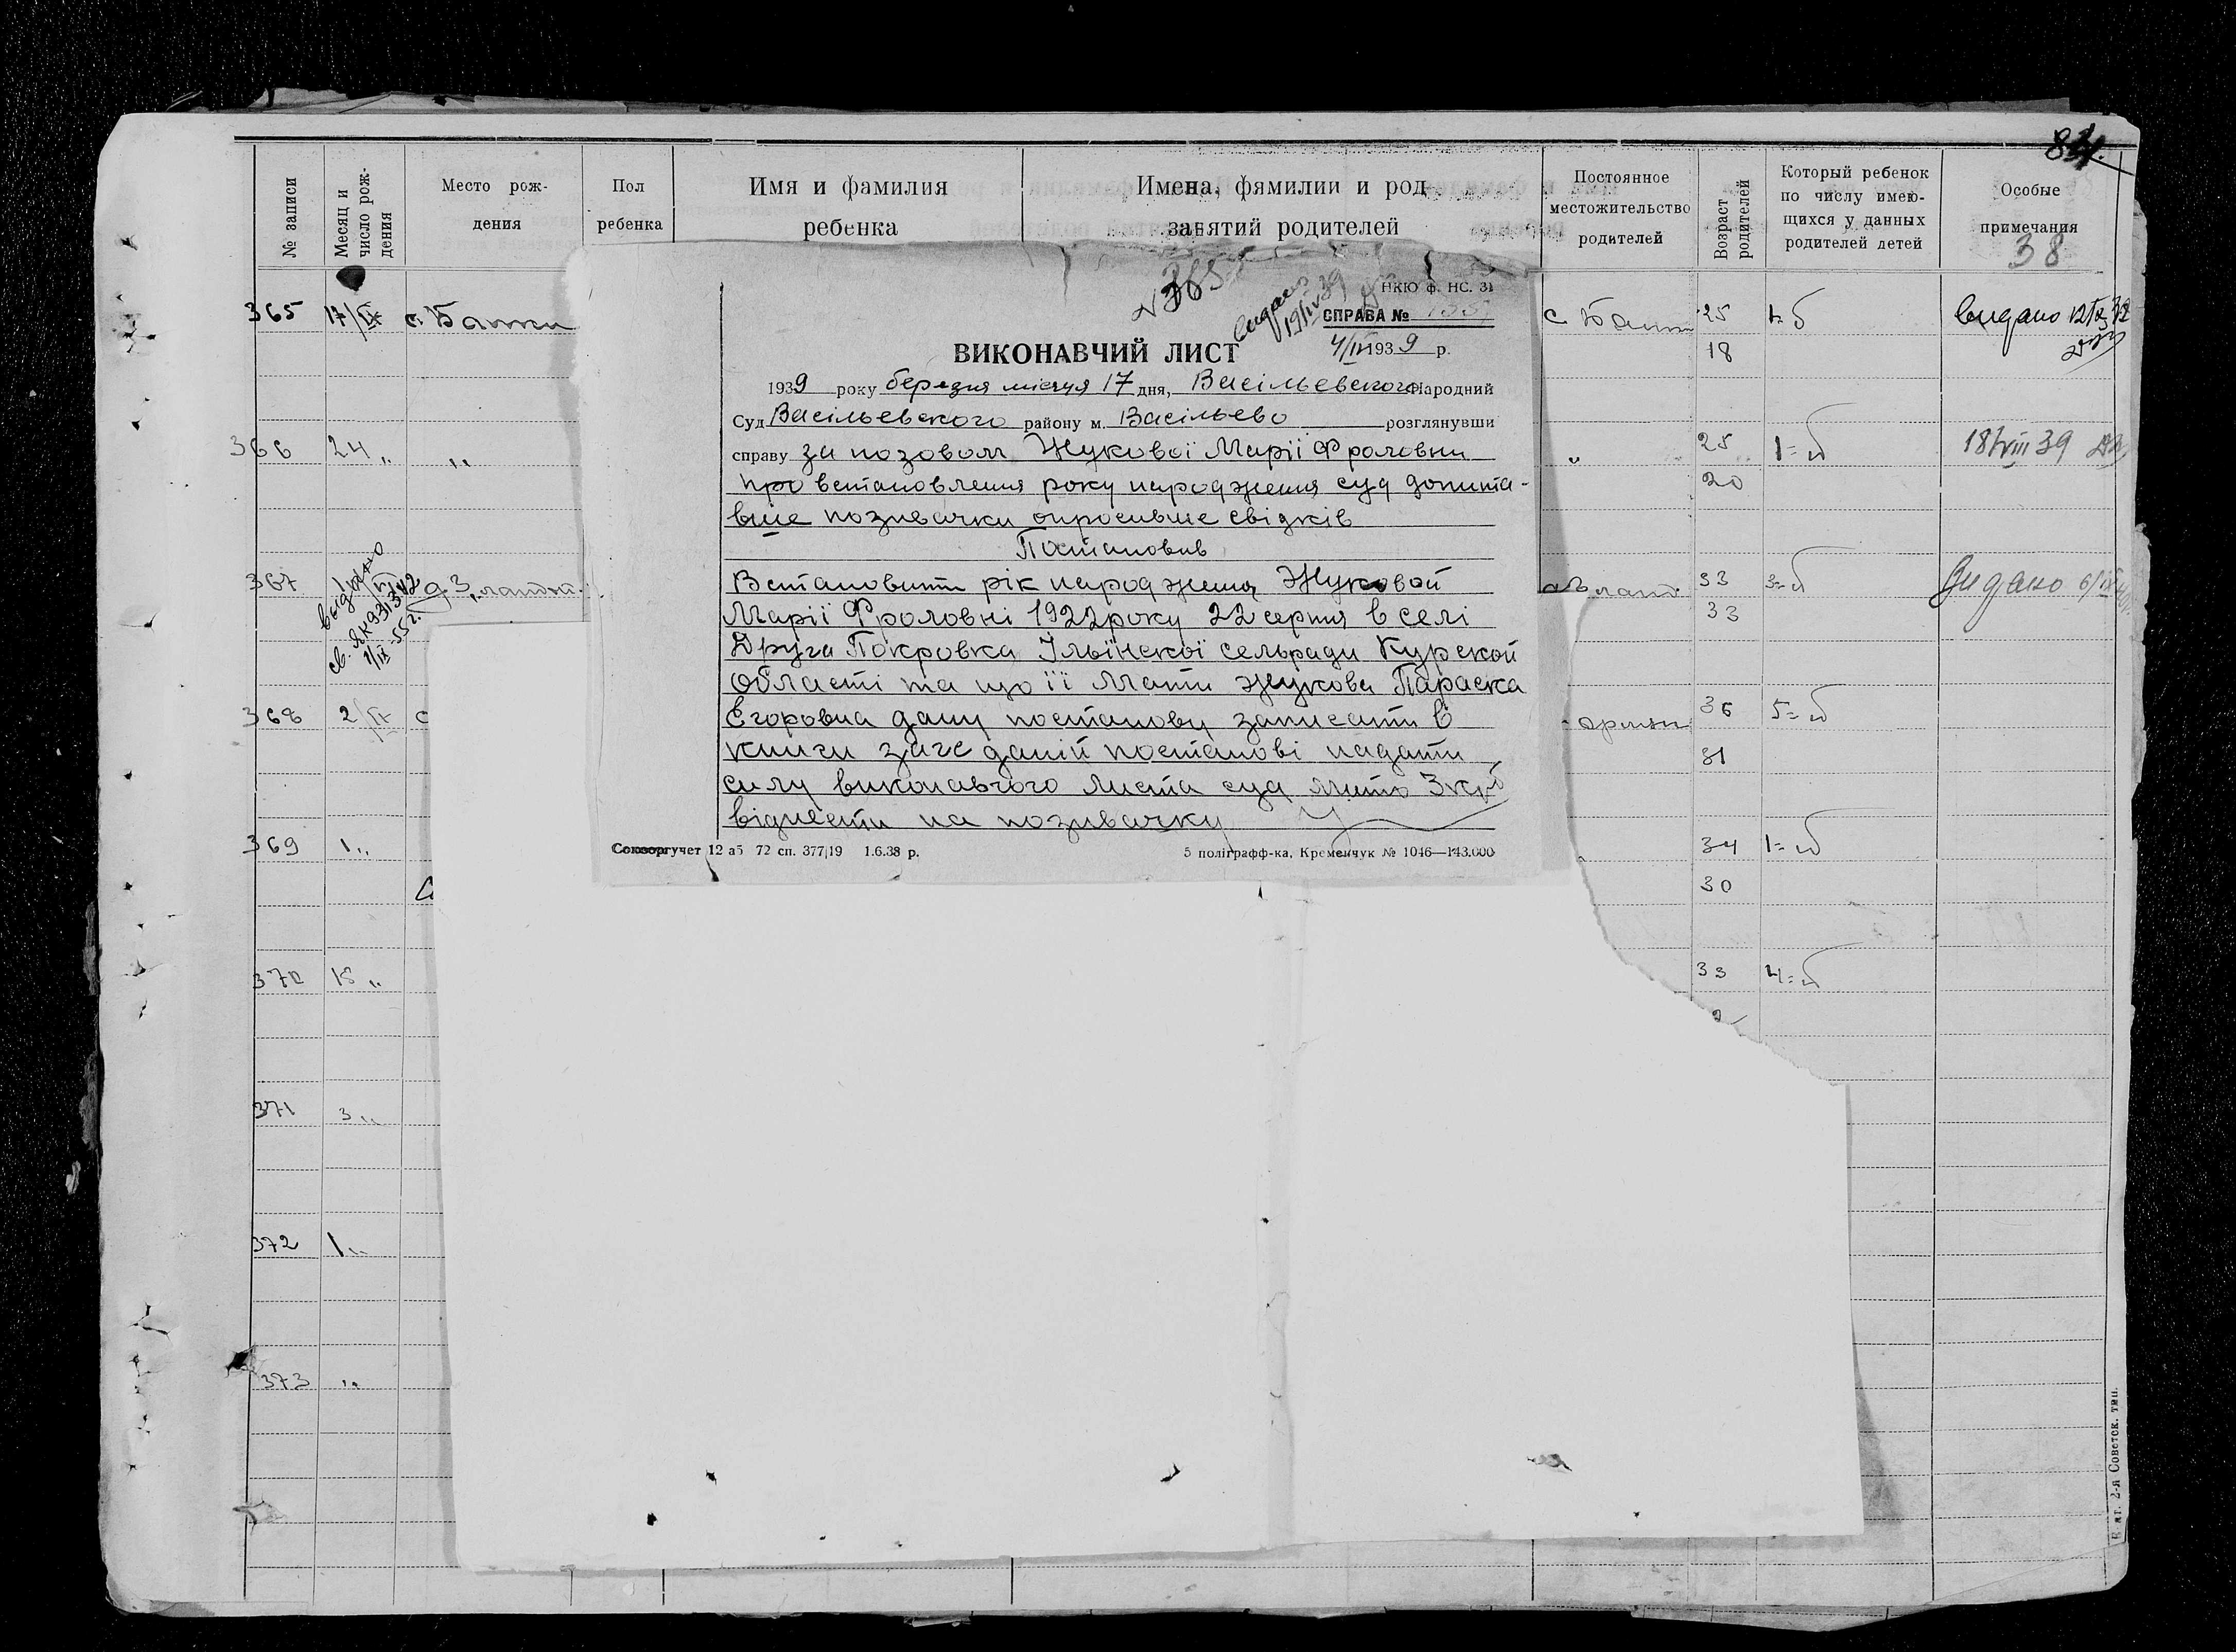 84.
№ записи
Месяц и число рождения
Место рож-
дения
Пол
ребенка
Имя и фамилия
ребенка
Имена, фямилии и род
занятий родителей
Постоянное
местожительство
родителей
Возраст
родителей
Который ребенок
по числу имею-
щихся у данных
родителей детей
Особые
примечания
38
365 17/IX с. Балки
с Балки 25 1-й видано
18
366 24 „ „
„ 25 1-й 18/VIII 39
20
367
видано
1/III-55 г.
33 3-й видано
33
368 2/IX с
36 5-й
31
369 1 „
34 1-й
30
370 15 „
33 4-й
371 3 „
372 1 „
373 „
№ 365
видано
19/IV 39
НКЮ ф. НС. 31
СПРАВА №
4/IV 1939 р.
ВИКОНАВЧИЙ ЛИСТ
1939 року березня місяця 17 дня, Васільевского Народний
Суд Васільевского району м. Васільево розглянувши
справу за позовом Жукової Марії Фроловни
про встановлення року народження суд допита-
вше позивачки опросивше свідків
Постановив
Встановити рік народження Жуковой
Марії Фроловні 1922 року 22 серпня в селі
Друга Покровка Ільїнскої сельради Курской
області та що її мати Жукова Параска
Егоровна дану постанову записати в
книги загс даній постанові надати
силу виконавчого листа суд мито 3 крб
віднести на позивачку
Союзоргучет 12 аб 72 сп. 377|19 1.6.38 р.
5 поліграфф-ка, Кременчук № 1046—143.000
2-я Советск. тип.